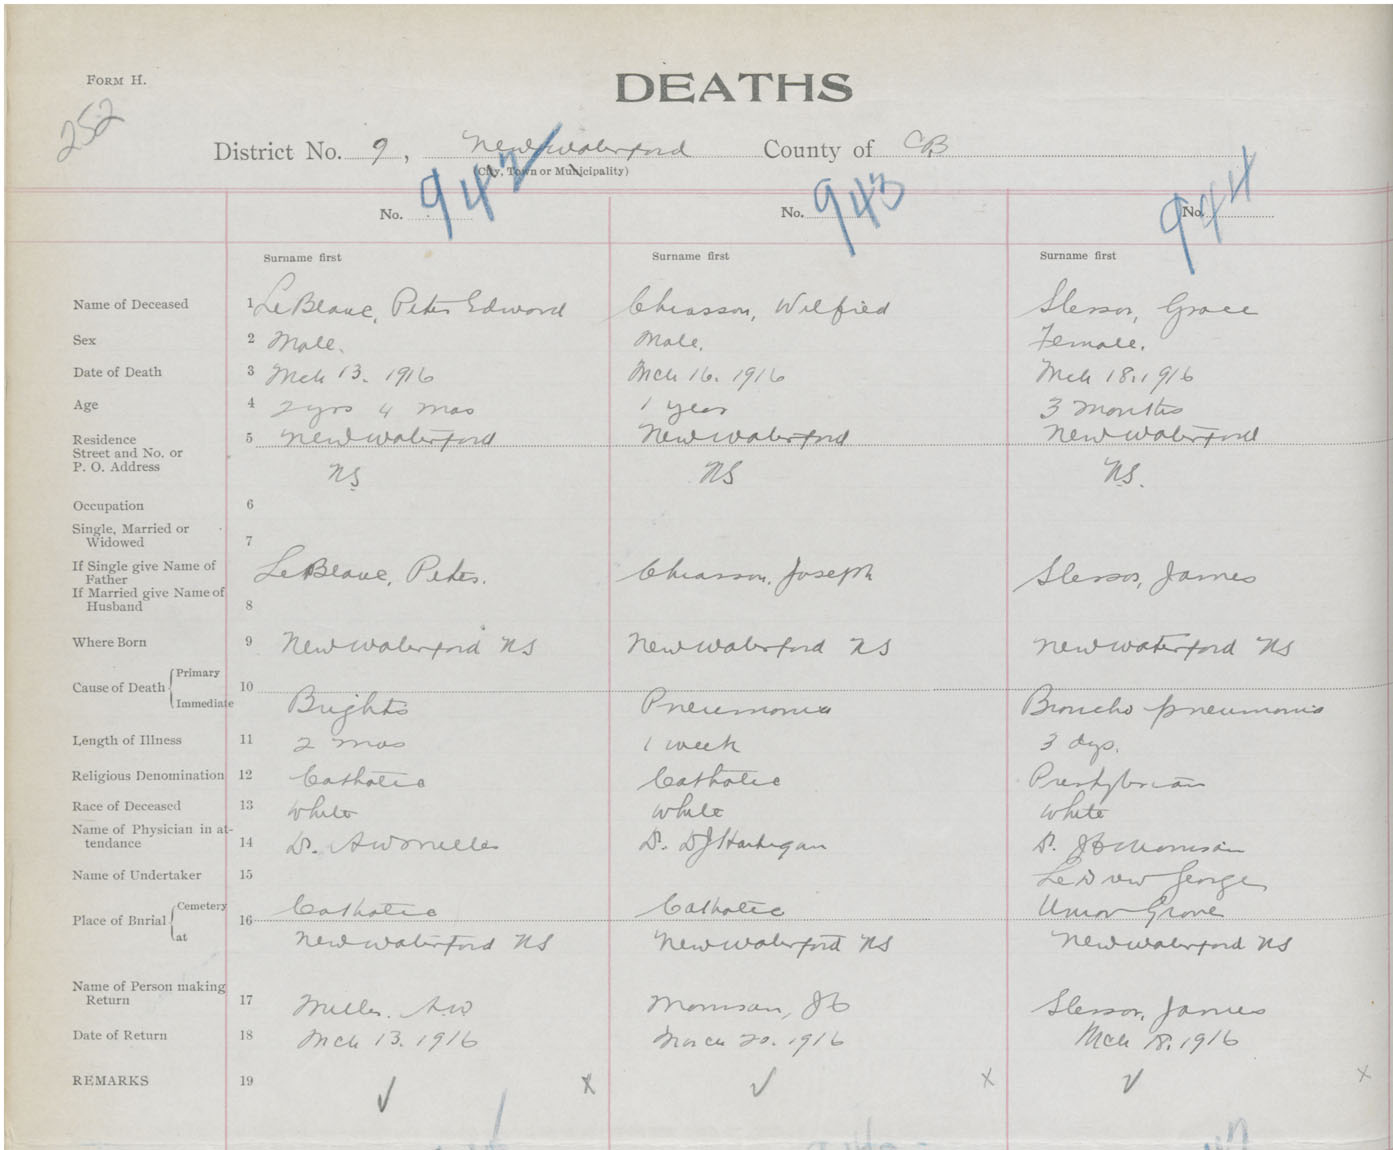 FORM H.
DEATHS
252
District No. 9, New Waterford County of CB
(City, Town or Municipality)
No. 942 No. 943 No. 944
Surname first Surname first Surname first
Name of Deceased 1 LeBlanc, Peter Edward Chiasson, Wilfred Slessor, Grace
Sex 2 Male. Male. Female.
Date of Death 3 Mch 13. 1916 Mch 16. 1916 Mch 18. 1916
Age 4 2 yrs 4 mos 1 year 3 months
Residence 5 New Waterford New Waterford New Waterford
Street and No. or
P. O. Address NS NS NS.
Occupation 6
Single, Married or
Widowed 7
If Single give Name of
Father LeBlanc, Peter. Chiasson, Joseph Slessor, James
If Married give Name of
Husband 8
Where Born 9 New Waterford NS New Waterford NS New Waterford NS
Cause of Death Primary 10
Immediate Brights Pneumonia Broncho pneumonia
Length of Illness 11 2 mos 1 week 3 dys.
Religious Denomination 12 Catholic Catholic Presbyterian
Race of Deceased 13 White White White
Name of Physician in at-
tendance 14 Dr. A W Miller Dr. D J Hartigan Dr. J B Morrison
Name of Undertaker 15 LeDrew George
Place of Burial Cemetery 16 Catholic Catholic Union Grove
at New Waterford NS New Waterford NS New Waterford NS
Name of Person making
Return 17 Miller, A.W Morrison, J B Slessor, James
Date of Return 18 Mch 13. 1916 March 20. 1916 Mch 18. 1916
REMARKS 19 ✓ x ✓ x ✓ x